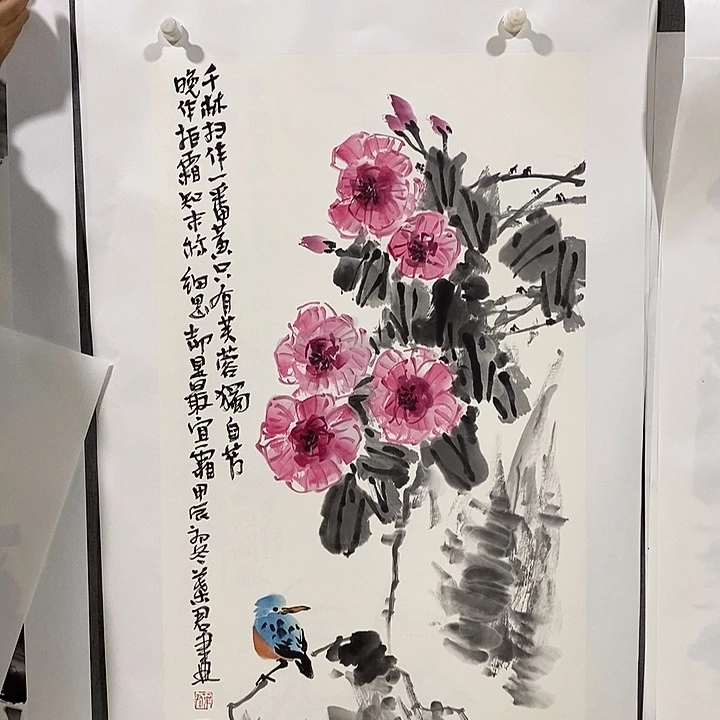 千林扫作一番黄只有芙蓉獨自芳
唤作拒霜知未称细思却是最宜霜甲辰初冬葉君